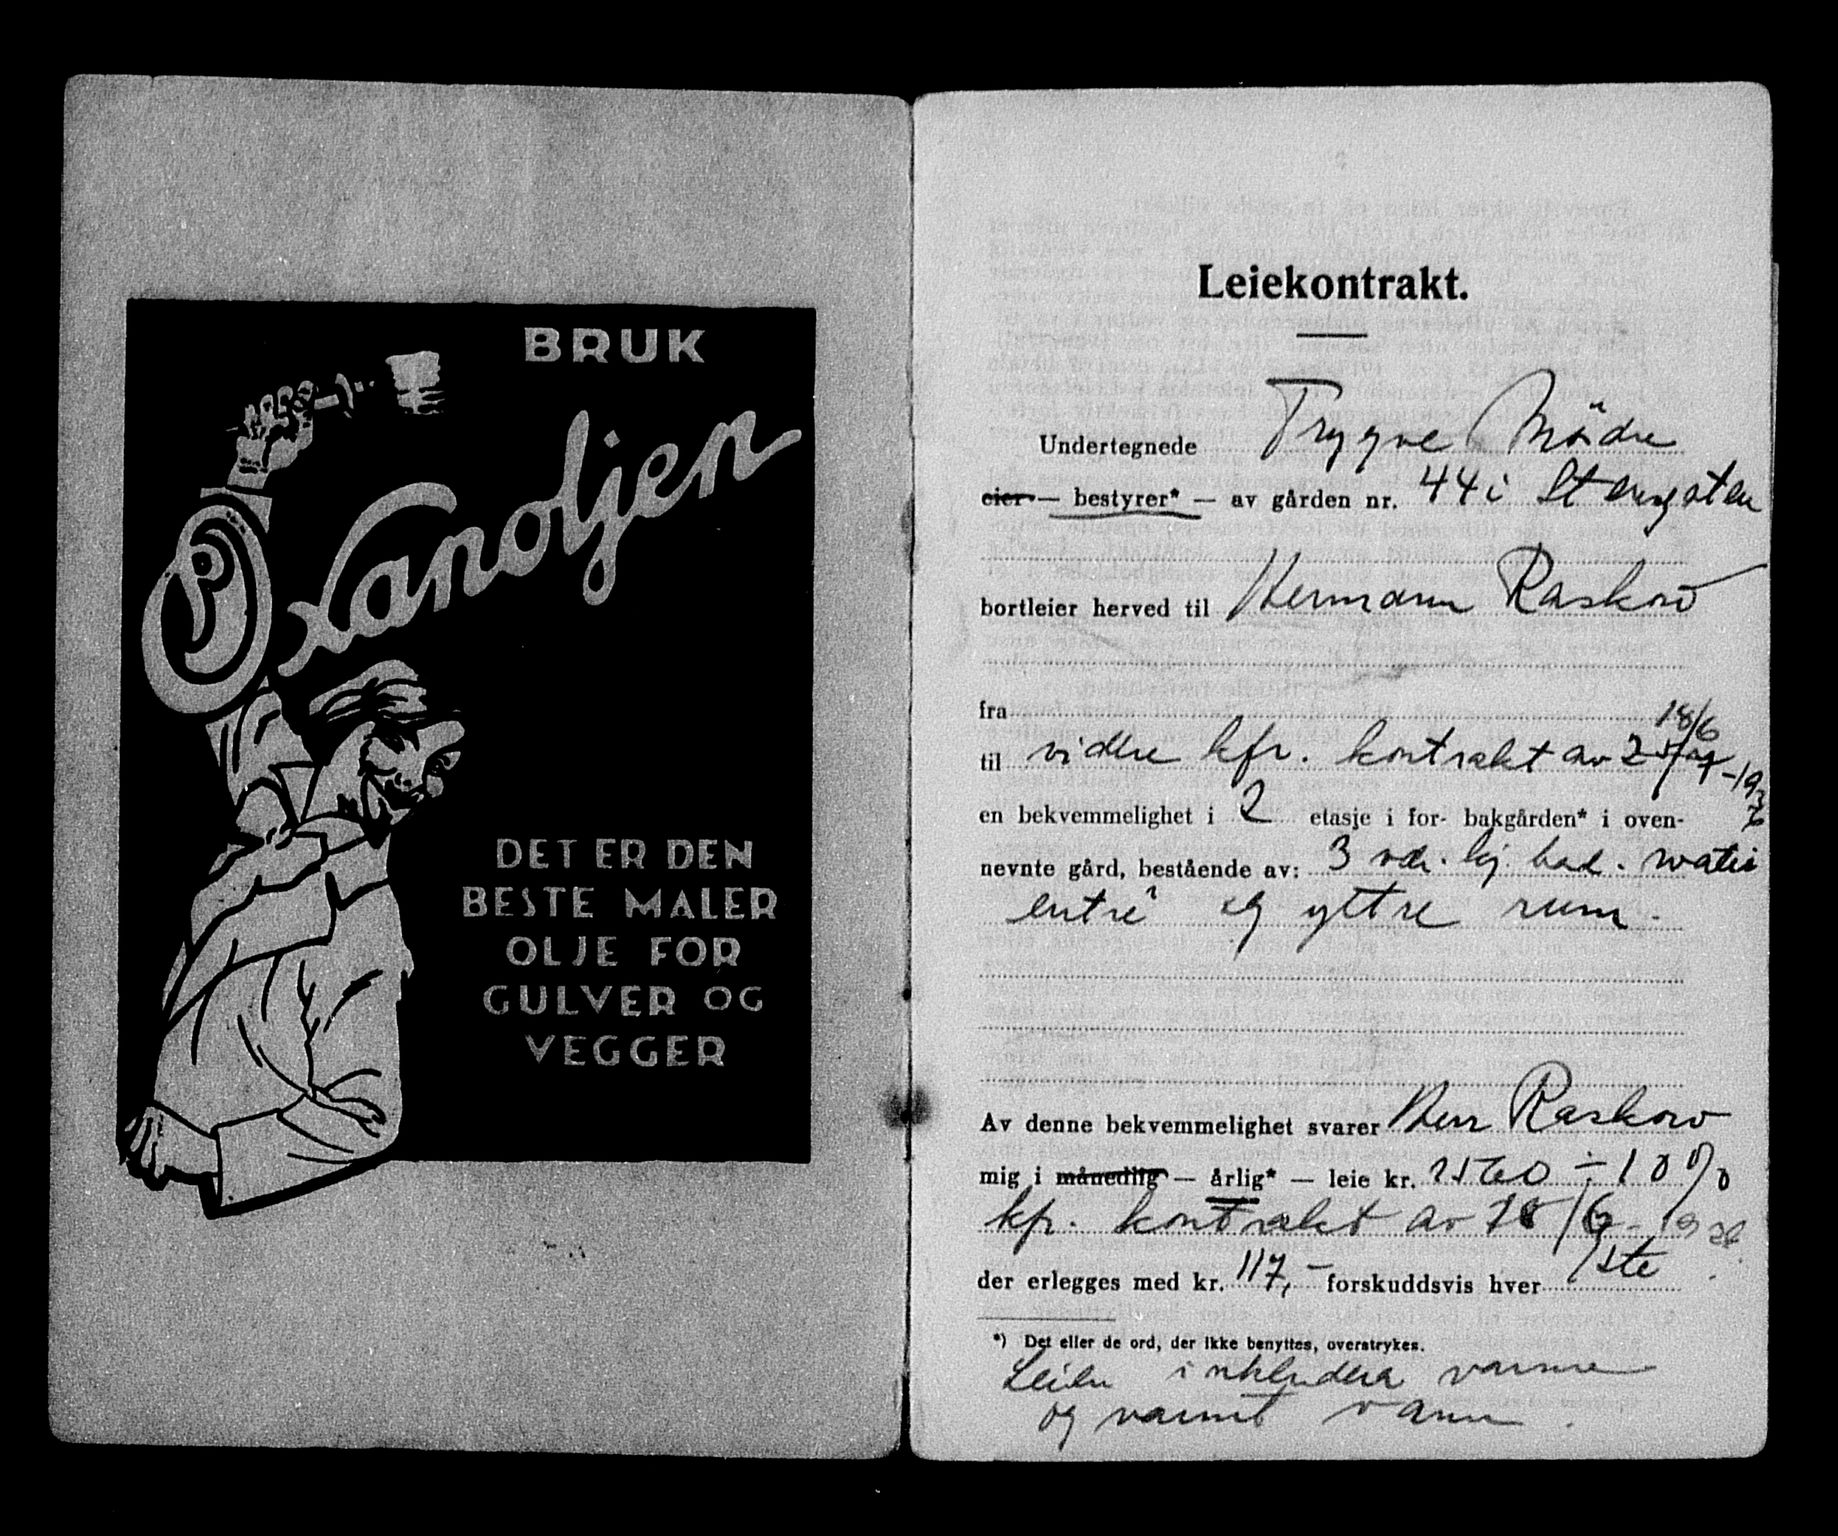 BRUK
Oxanoljen
DET ER DEN
BESTE MALER
OLJE FOR
GULVER OG
VEGGER
Leiekontrakt.
Undertegnede Trygve Mödre
eier — bestyrer* — av gården nr. 44 i Storgaten
bortleier herved til Hermann Raskow
fra
18/6
til videre kfr. kontrakt av -1936
en bekvemmelighet i 2 etasje i for- bakgården* i oven-
nevnte gård, bestående av: 3 vær. kj. bad. water
entré og yttre rum.
Av denne bekvemmelighet svarer Herr Raskow
mig i månedlig — årlig* — leie kr. 1560 ÷ 10%
kfr. kontrakt av 18/6-1936.
der erlegges med kr. 117,- forskuddsvis hver 1ste
*) Det eller de ord, der ikke benyttes, overstrykes.
Leien inkluderer varme
og varmt vann.